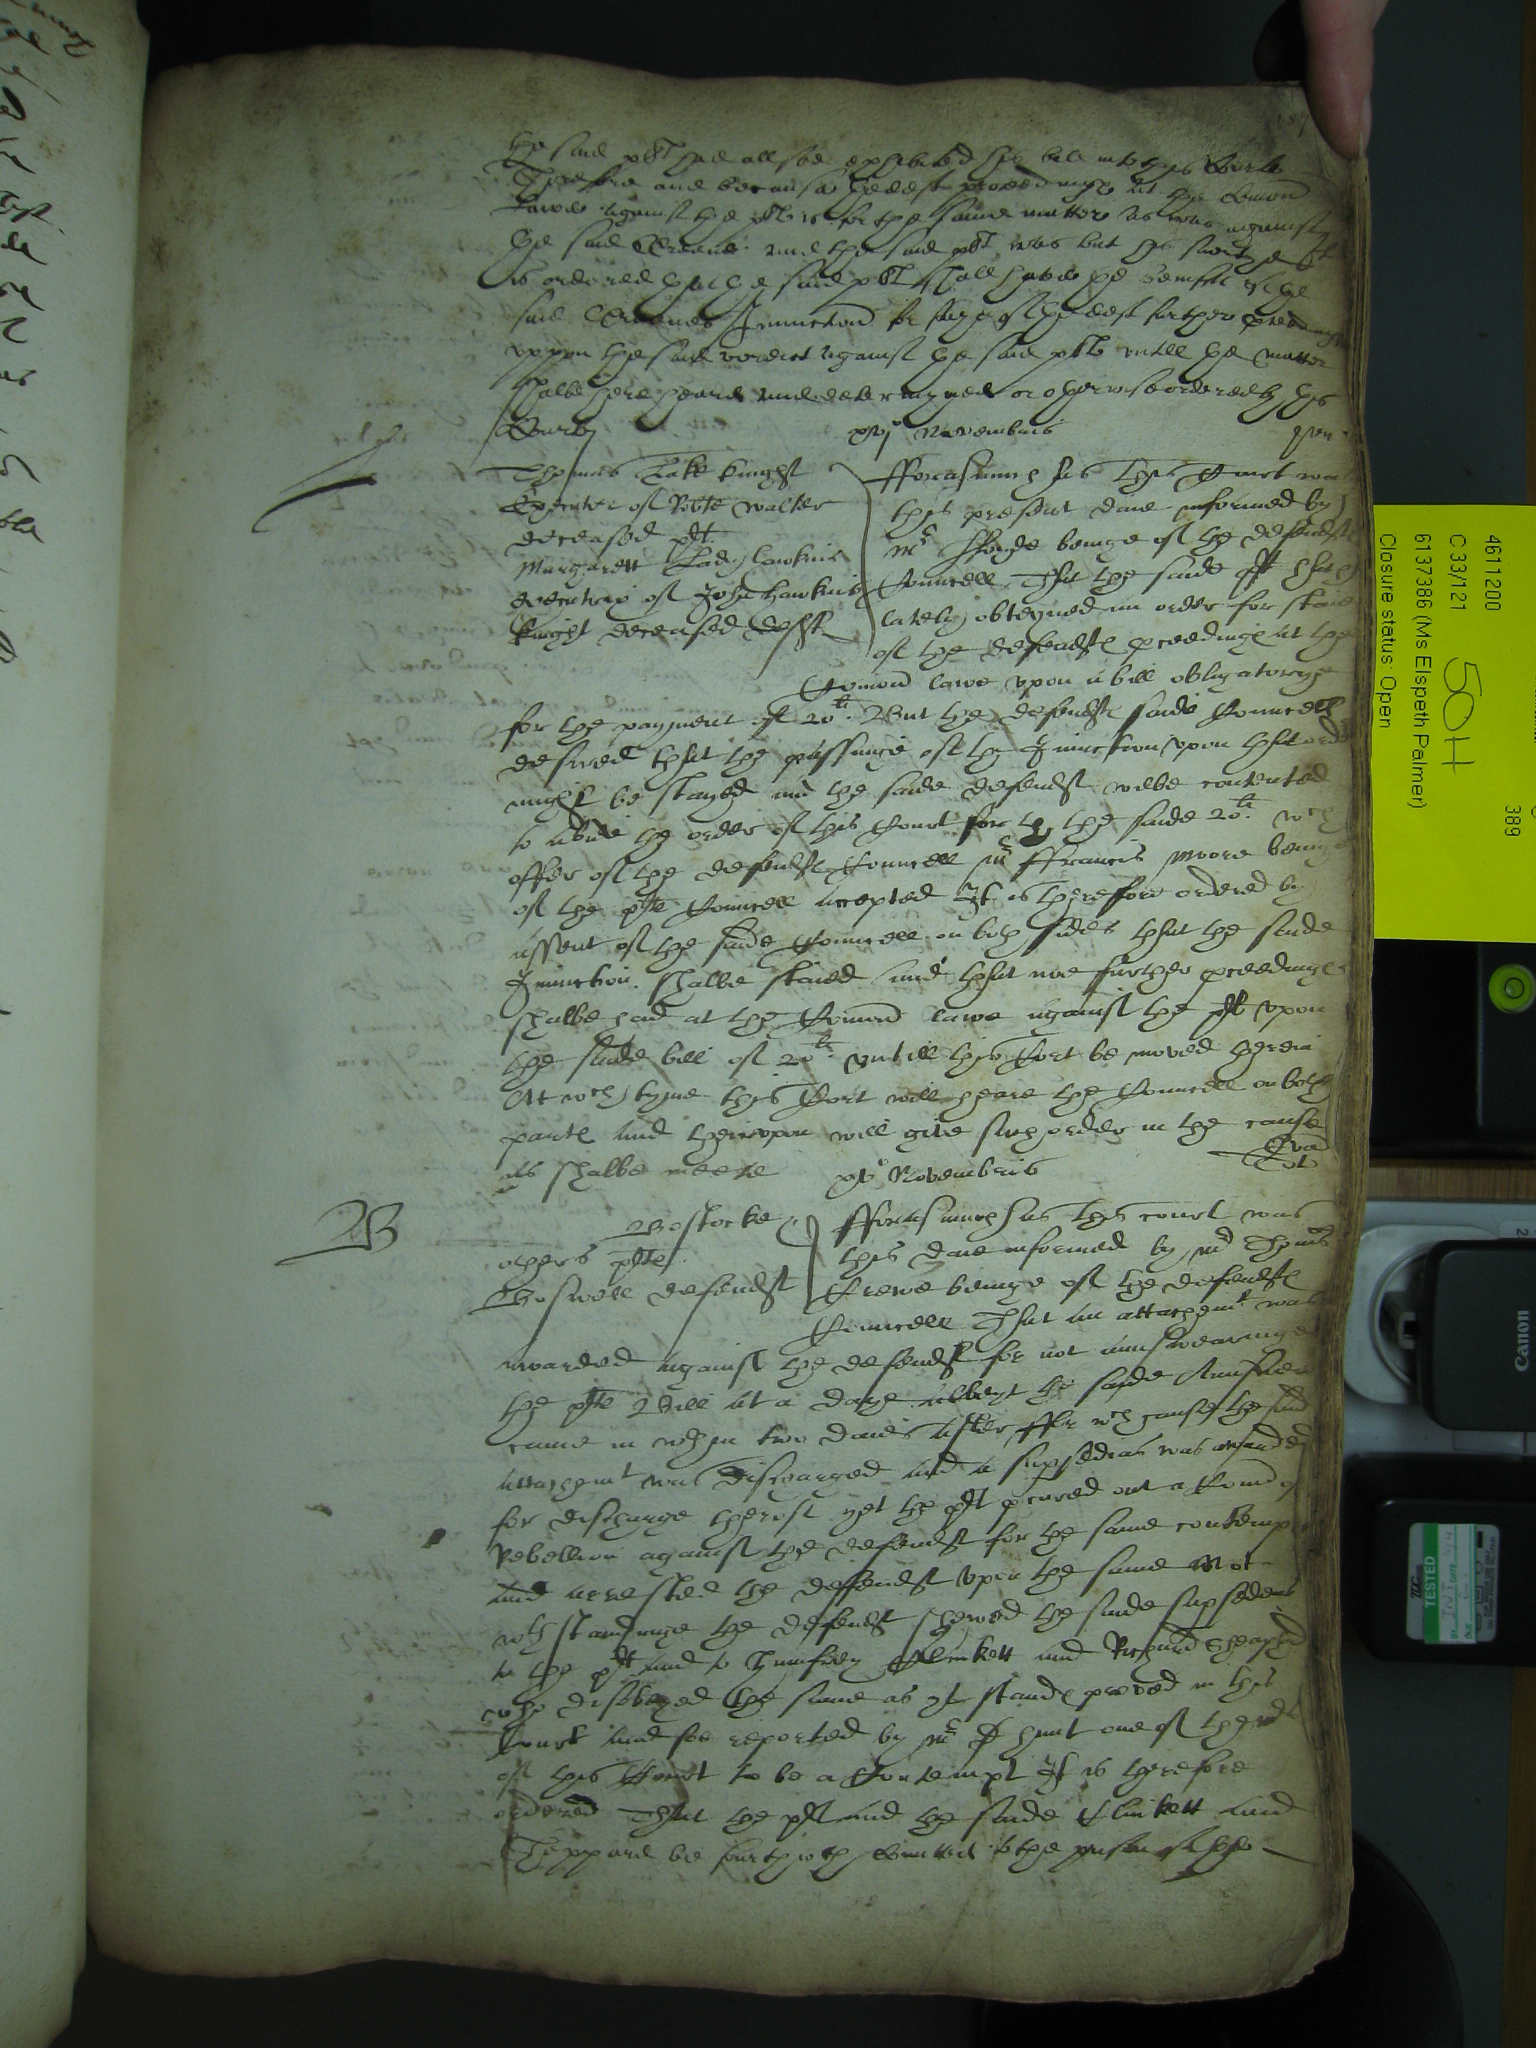 the said plt had allsoe exhibited his bill into this Courte
Therefore and because the deft proceedinge at the Comon
lawe against the plt is for the same matter as was against
the said and the said plt was but his suertye yt
is ordered that the said plt shall have the benefit of the
said Iniunction for staye of the deft further proceedings
vppon the said verdict against the said plt vntill the matter
shalbe here heard and determyned or otherwise ordered by this
Courte
xvj° Novembris
Thomas Tasker knight
Executor of Robte Walter
deceased plt
Margarett Lady Hawkins
executrix of John Hawkins
knight deceased deft
fforasmuch as this Court was
this present daie informed by
Mr beinge of the defendts
Councell That the saide plt hath
lately obteyned an order for staie
of the defendts proceedinge at the
Comon lawe vpon a bill obligatorye
for the payment of 20li But the defendts saide Councell
desired that the passinge of the Iniunction vpon that order
might be stayed and the saide defendt wilbe contented
to abide the order of this Court for the saide 20li wch
offer of the defendts Councell Mr ffrancis Moore beinge
of the plts Councell accepted It is therefore ordered by
assent of the saide Councell on both sides that the saide
Iniunction shalbe staied and that noe further proceedinge
shalbe had at the Comon lawe against the plt vpon
the saide bill of 20li vntill this Court be moved herein
At wch tyme this Court will heare the Councell on both
parts and therevpon will give such order in the cause
as shalbe meete
xvj° Novembris
B
Bostocke
others plts
Boswell defendt
fforasmuch as this court was
this daie informed by Mr Thomas
Crewe beinge of the defendts
Councell That an attachemt was
awarded against the defendt for not aunswearinge
the plts Bill at a daye albeyt the saide Aunswer
came in within two daies after ffor wch cause the said
attachemt was discharged and a supsedeas was awarded
for discharge therof yet the plt pcured out a Comon of
Rebellion against the defendt for the same contempt
and arrested the deffendt vpon the same Not
wthstandinge the defendt shewed the saide supsedeas
to the plt and to Humfrey Clinkett and Richard Sheapard
who disobeyed the same as yt stands proved in this
Court and soe reported by Mr D Hunt one of the Mrs
of this Court to be a Contempt It is therefore
ordered That the plt and the saide Clinkett and
Sheppard be furthwth Comitted to the prison of the
4611200
C 33/121
504
6137386 (Ms Elspeth Palmer)
Closure status: Open
389
Canon
TESTED